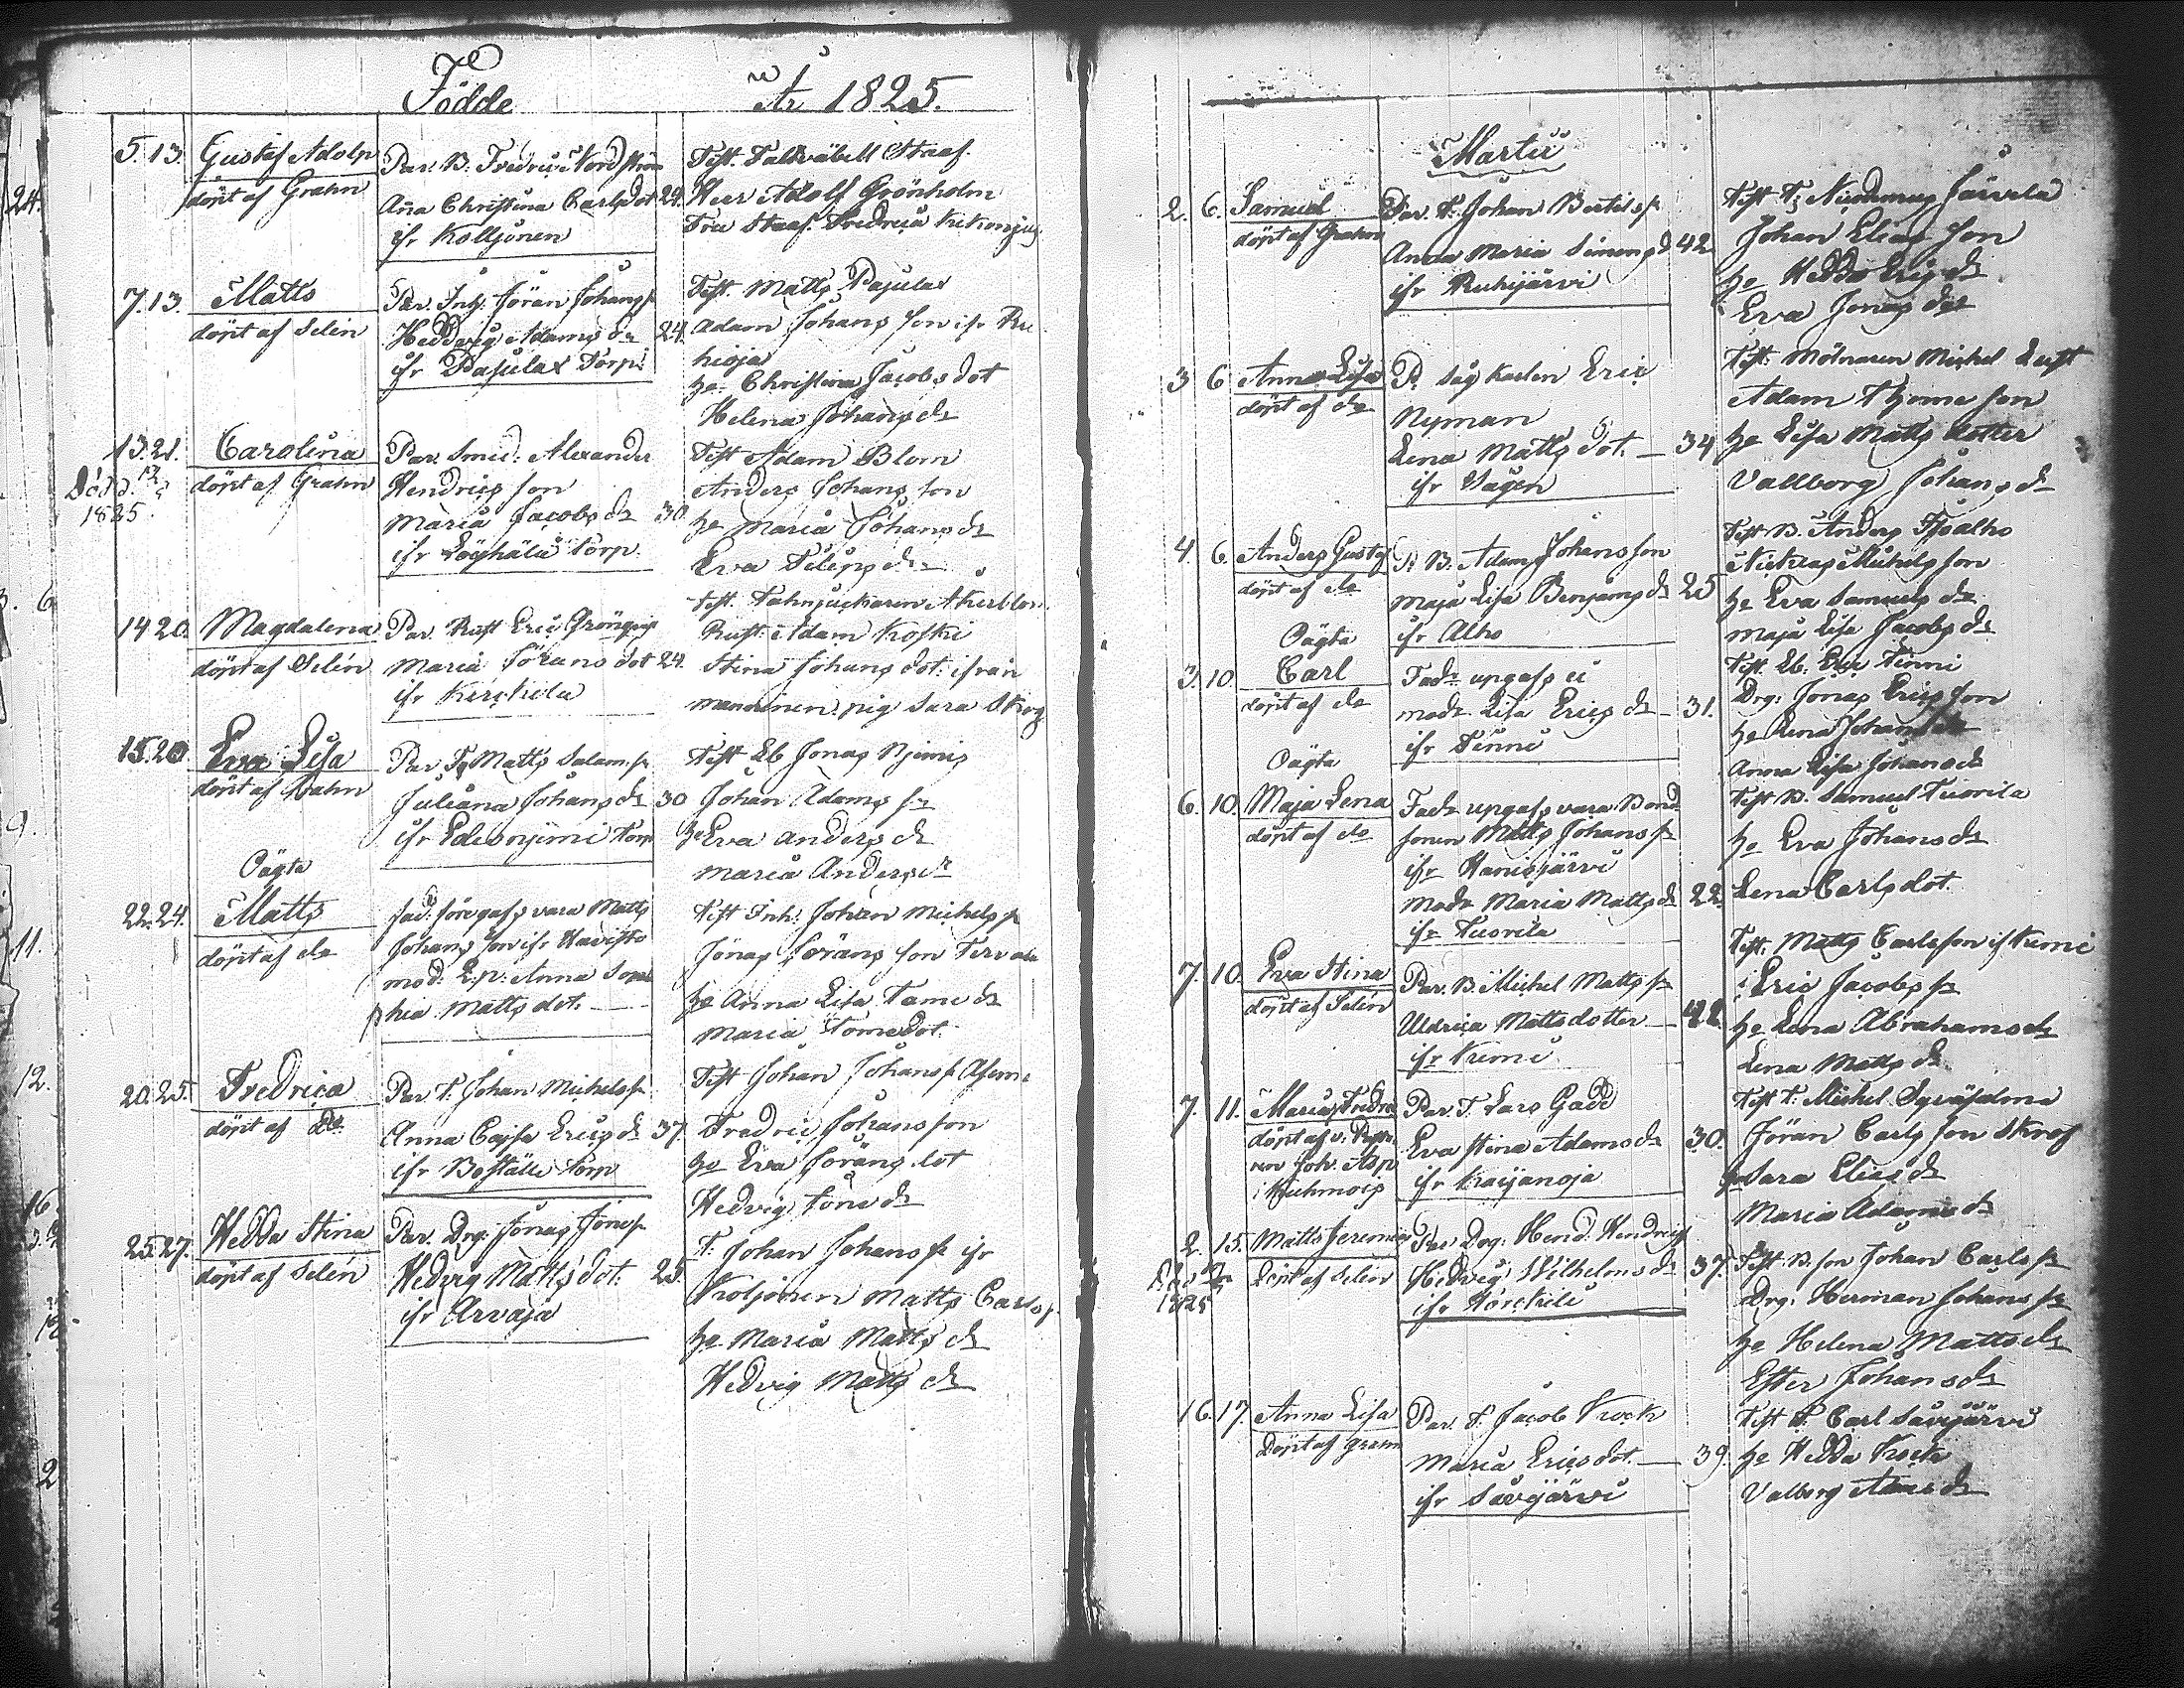 Födde År 1825.
5. 13. Gustaf Adolp
döpt af Grahn
Par. B. Fredric Nordström
Aña Christina Carlsdot 24.
ifr Kolljonen
Test. Staaf.
Herr Adolf Grönholm
Fru Staaf. Fredrica
7. 13. Matts
döpt af Selén
Par. Inh. Jöran Johans sr
Hedevig Adams dr 24.
ifr Pajulax Torp.
Test. Matts Pajulax
Adam Johans son ifr Ru
hioja
ho Christina Jacobs dot
Helena Johans dr
13. 21. Carolina
döpt af Grahn
Död d.
1825.
Par. Smed. Alexander
Hendrics son
Maria Jacobs dr 30.
ifr Löyhälä Torp.
Test Adam Blom
Anders Johans son
ho Maria Johans dr
Eva Filips dr
14 20. Magdalena
döpt af Selén
Par. Rust Eric Grönqvist
Maria Jörans dot 24.
ifr Kerckilä
Test. Fahnjunkaren Åkerblom
Rust. Adam Koski
Stina Johans dot. ifrån
pig Sara Skog
15. 20 Eva Lisa
döpt af Grahn
Par T. Matts Salam. sr
Juliana Johans dr 30
ifr Edesnjemi Torp
Test Lb Jonas Njemis
Johan Adams sr
ho Eva Anders dr
Maria Anders dr
Oägta
22. 24. Matts
döpt af do
fad. föregafs vara Matts
Johans son ifr Havisto
mod. L.p. Anna Sop
hia Matts dot.
Test Inh. Johan Michels sr
Jonas Jörans son
ho Anna Lisa Tome dr
Maria Tome dot
20. 25. Fredrica
döpt af do
Par T. Johan Michels sr
Anna Cajsa Erics dr 37.
ifr Boställe Torp
Test Johan Johans sr
Fredric Johans son
ho Eva Jörans dot
Hedvig Töns dr
25. 27. Hedda Stina
döpt af Selén
Par. Drg. Jonas Jons sr
Hedvig Matts dot. 25.
ifr Arvaja
T. Johan Johans sr ifr
Koljonen Matts Carls sr
ho Maria Matts dr
Hedvig Matts dr
Martii
2. 6. Samuel
döpt af Grahn
Par. T. Johan Bertils sr
Anna Maria Simons d 42
ifr Ruhijärvi
Test T. Järvelä
Johan Elias son
ho Hedda Erics dr
Eva Jonas dr
3 6 Anna Lisa
döpt af do
P. Sågkarlen Eric
Nyman
Lena Matts dot. — 34
ifr Sågen
Test. Mölnaren Michel Lust
Adam Thome son
ho Lisa Matts dotter
Vallborg Johans dr
4. 6. Anders Gustaf
döpt af do
P. B. Adam Johansson
Maja Lisa Benjams dr 25
ifr Alho
Test B. Anders Isoalho
Nicklas Michels son
ho Eva Samuels dr
Maja Lisa Jacobs dr
Oägta
3. 10. Carl
döpt af do
Fadr upgafs ei
modr Lisa Erics dr — 31.
ifr Tinni
Test. Lb. Eric Tinni
Drg. Jonas Erics son
ho Lena Johans dr
Anna Lisa Johans dr
Oägta
6. 10. Maja Lena
döpt af do
Fadr upgafs vara Bond
sonen Matts Johans sr
ifr Hanisjärvi
modr Maria Matts dr 22.
ifr Tuorila
Test B. Samuel Tuorila
ho Eva Johans dr
Lena Carls dot.
7. 10. Eva Stina
döpt af Selén
Par. B. Michel Matts sr
Uldrica Mattsdotter — 42
ifr Kumi
Test. Matts Carlsson if Kumi
Eric Jacobs sr
ho Lena Abrahams dr
Lena Matts dr
7. 11. Maria Fredrica
döpt af v.
Joh. Asp
i Kuhmois
Par. T. Lars Gadd
Eva Stina Adams dr 30.
ifr Kaijanoja
Test T. Michel Syväsalma
Jöran Carls son Skrof
ho Sara Elias dr
Maria Adams dr
2. 15. Matts Jeremias
döpt af Selén
1825
Par Drg. Hend. Hendrics
Hedvig Wilhelms dr 37.
ifr Hörckilä
Test B. son Johan Carls sr
Drg. Herman Johans sr
ho Helena Matts dr
Ester Johans dr
16. 17. Anna Lisa
döpt af Grahn
Par. T. Jacob Kock
Maria Erics dot. — 39.
ifr Savijärvi
Test T. Carl Savijärvi
ho Hedda Kock
Valborg Adams dr